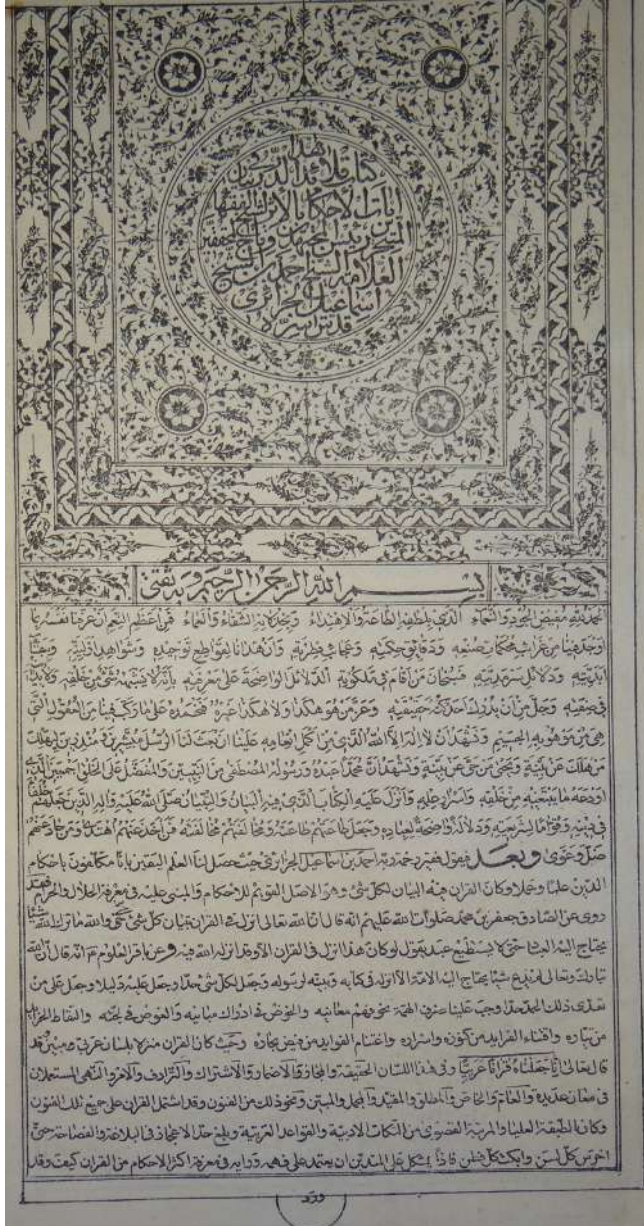 هذا
كتاب قلائد الدرر في بيان
ايات الاحكام بالاثر للشيخ الفقهاء
رئيس المجتهدين وتاج المحققين
العلامة الشيخ احمد بن الشيخ
اسماعيل الجزائري
قدس سره
بسم الله الرحمن الرحيم وبه ثقتي
الحمد لله مفيض الجود والنعماء الذي بلطفه الطاعة والاهتداء وبخذلانه الشقاء والعماء فمن اعظم النعم ان عرفنا نفسه بما
اوجد فينا من غرائب محكمات صنعه ودقائق حكمته وعجائب فطرته وان هدانا لقواطع توحيده وشواهد ازليته
ابديته ودلائل سرمديته فسبحان من اقام في ملكوته الدلائل الواضحة على معرفته بانه لا يشبهه شئ من خلقه
في صفته وجل من ان يدرك احد كنه حقيقته وعز من هو هكذا ولا هكذا غيره فنحمده على ما ركب فينا من العقول التي
هي من موهوبه الجسيم ونشهد ان لا اله الا الله الذي من اكمل انعامه علينا ان بعث لنا الرسل مبشرين ومنذرين ليهلك
من هلك عن بينة ويحيى من حي عن بينة ونشهد ان محمدا عبده ورسوله المصطفى من النبيين والمفضل على الخلق اجمعين الذي
اودعه ما يبتغيه من خلقه واسرار حلمه وانزل عليه الكتاب الذي فيه البيان والتبيان صلى الله عليه واله الذين جعلهم
وقواما لشريعته ودلالة واضحة لعباده وجعل طاعتهم طاعته ومخالفتهم مخالفته فمن اخذ عنهم اهتدى ومن حاد عنهم
ضل وغوى وبعد فيقول فقير رحمة ربه احمد بن اسماعيل الجزائري حيث حصل لنا العلم اليقين بانا مكلفون باحكام
الدين علما وعملا وكان القران فيه البيان لكل شئ وهو الاصل القويم للاحكام والمبنى عليه في معرفة الحلال والحرام فقد
روى عن الصادق جعفر بن محمد صلوات الله عليهم انه قال ان الله تعالى انزل في القران تبيان كل شئ حتى والله ما ترك الله شيئا
يحتاج اليه العباد حتى لا يستطيع عبد يقول لو كان هذا انزل في القران الا وقد انزله الله فيه وعن باقر العلوم ع انه قال ان الله
تبارك وتعالى لم يدع شيئا يحتاج اليه الامة الا انزله في كتابه وبينه لرسوله وجعل لكل شئ حدا وجعل عليه دليلا وجعل على من
تعدى ذلك الحد حدا وجب علينا صرف الهمة نحو فهم معانيه والخوض في ادراك مبانيه والغوص في لجته والتقاط
من تياره واقتناء الفرايد من كنوزه واسراره واغتنام الفوايد من فيض بحاره وحيث كان القران منزلا بلسان عربي ومبين قد
قال تعالى انا جعلناه قرانا عربيا وفي هذا اللسان الحقيقة والمجاز والاضمار والاشتراك والترادف والامر والنهي المستعملان
في معان عديدة والعام والخاص والمطلق والمقيد والمجمل والمبين ونحو ذلك من الفنون وقد اشتمل القران على جميع تلك الفنون
وكان بالطبقة العليا والمرتبة القصوى من النكات الادبية والقواعد العربية وبلغ حد الاعجاز في البلاغة والفصاحة حتى
اخرس كل لسن وابكت كل فطن فاذا يشكل على المتدين ان يعتمد على فهمه ورايه في معرفة اكثر الاحكام من القران كيف وقد
ورد